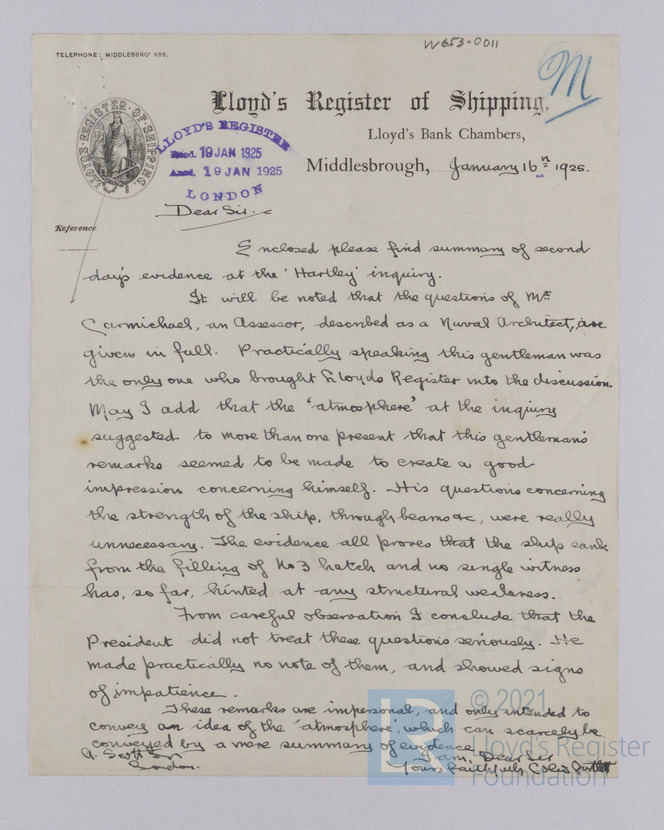 W653-0011
TELEPHONE: MIDDLESBRO' 555.
M
Lloyd's Register of Shipping,
Lloyd's Bank Chambers,
Middlesbrough, January 16th 1925.
LLOYD'S REGISTER OF SHIPPING.
LLOYD'S REGISTER
Recd. 19 JAN 1925
Ansd. 19 JAN 1925
LONDON
Dear Sir.
Reference
Enclosed please find summary of second
day's evidence at the 'Hartley' inquiry.
It will be noted that the questions of Mr
Carmichael, an Assessor, described as a Naval Architect, are
given in full. Practically speaking this gentleman was
the only one who brought Lloyds Register into the discussion.
May I add that the 'atmosphere' at the inquiry
suggested to more than one present that this gentleman's
remarks seemed to be made to create a good
impression concerning himself. His questions concerning
the strength of the ship, through beams &c, were really
unnecessary. The evidence all proves that the ship sank
from the filling of No 3 hatch and no single witness
has, so far, hinted at any structural weakness.
From careful observation I conclude that the
President did not treat these questions seriously. He
made practically no note of them, and showed signs
of impatience.
These remarks are impersonal, and only intended to
convey an idea of the 'atmosphere', which can scarcely be
conveyed by a mere summary of evidence
A. Scott
I am, Dear Sir
London.
Yours faithfully,
LR
© 2021
Lloyd's Register
Foundation